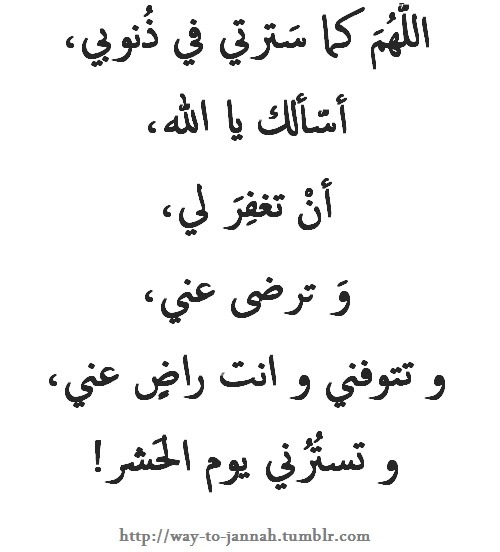 اللَّهُمَ كما سَترتي في ذُنوبي،
أسّألك يا الله،
أنْ تغفِرَ لي،
وَ ترضى عني،
و تتوفني و انت راضٍ عني،
و تستُرُني يوم الحَشر!
http://way-to-jannah.tumblr.com